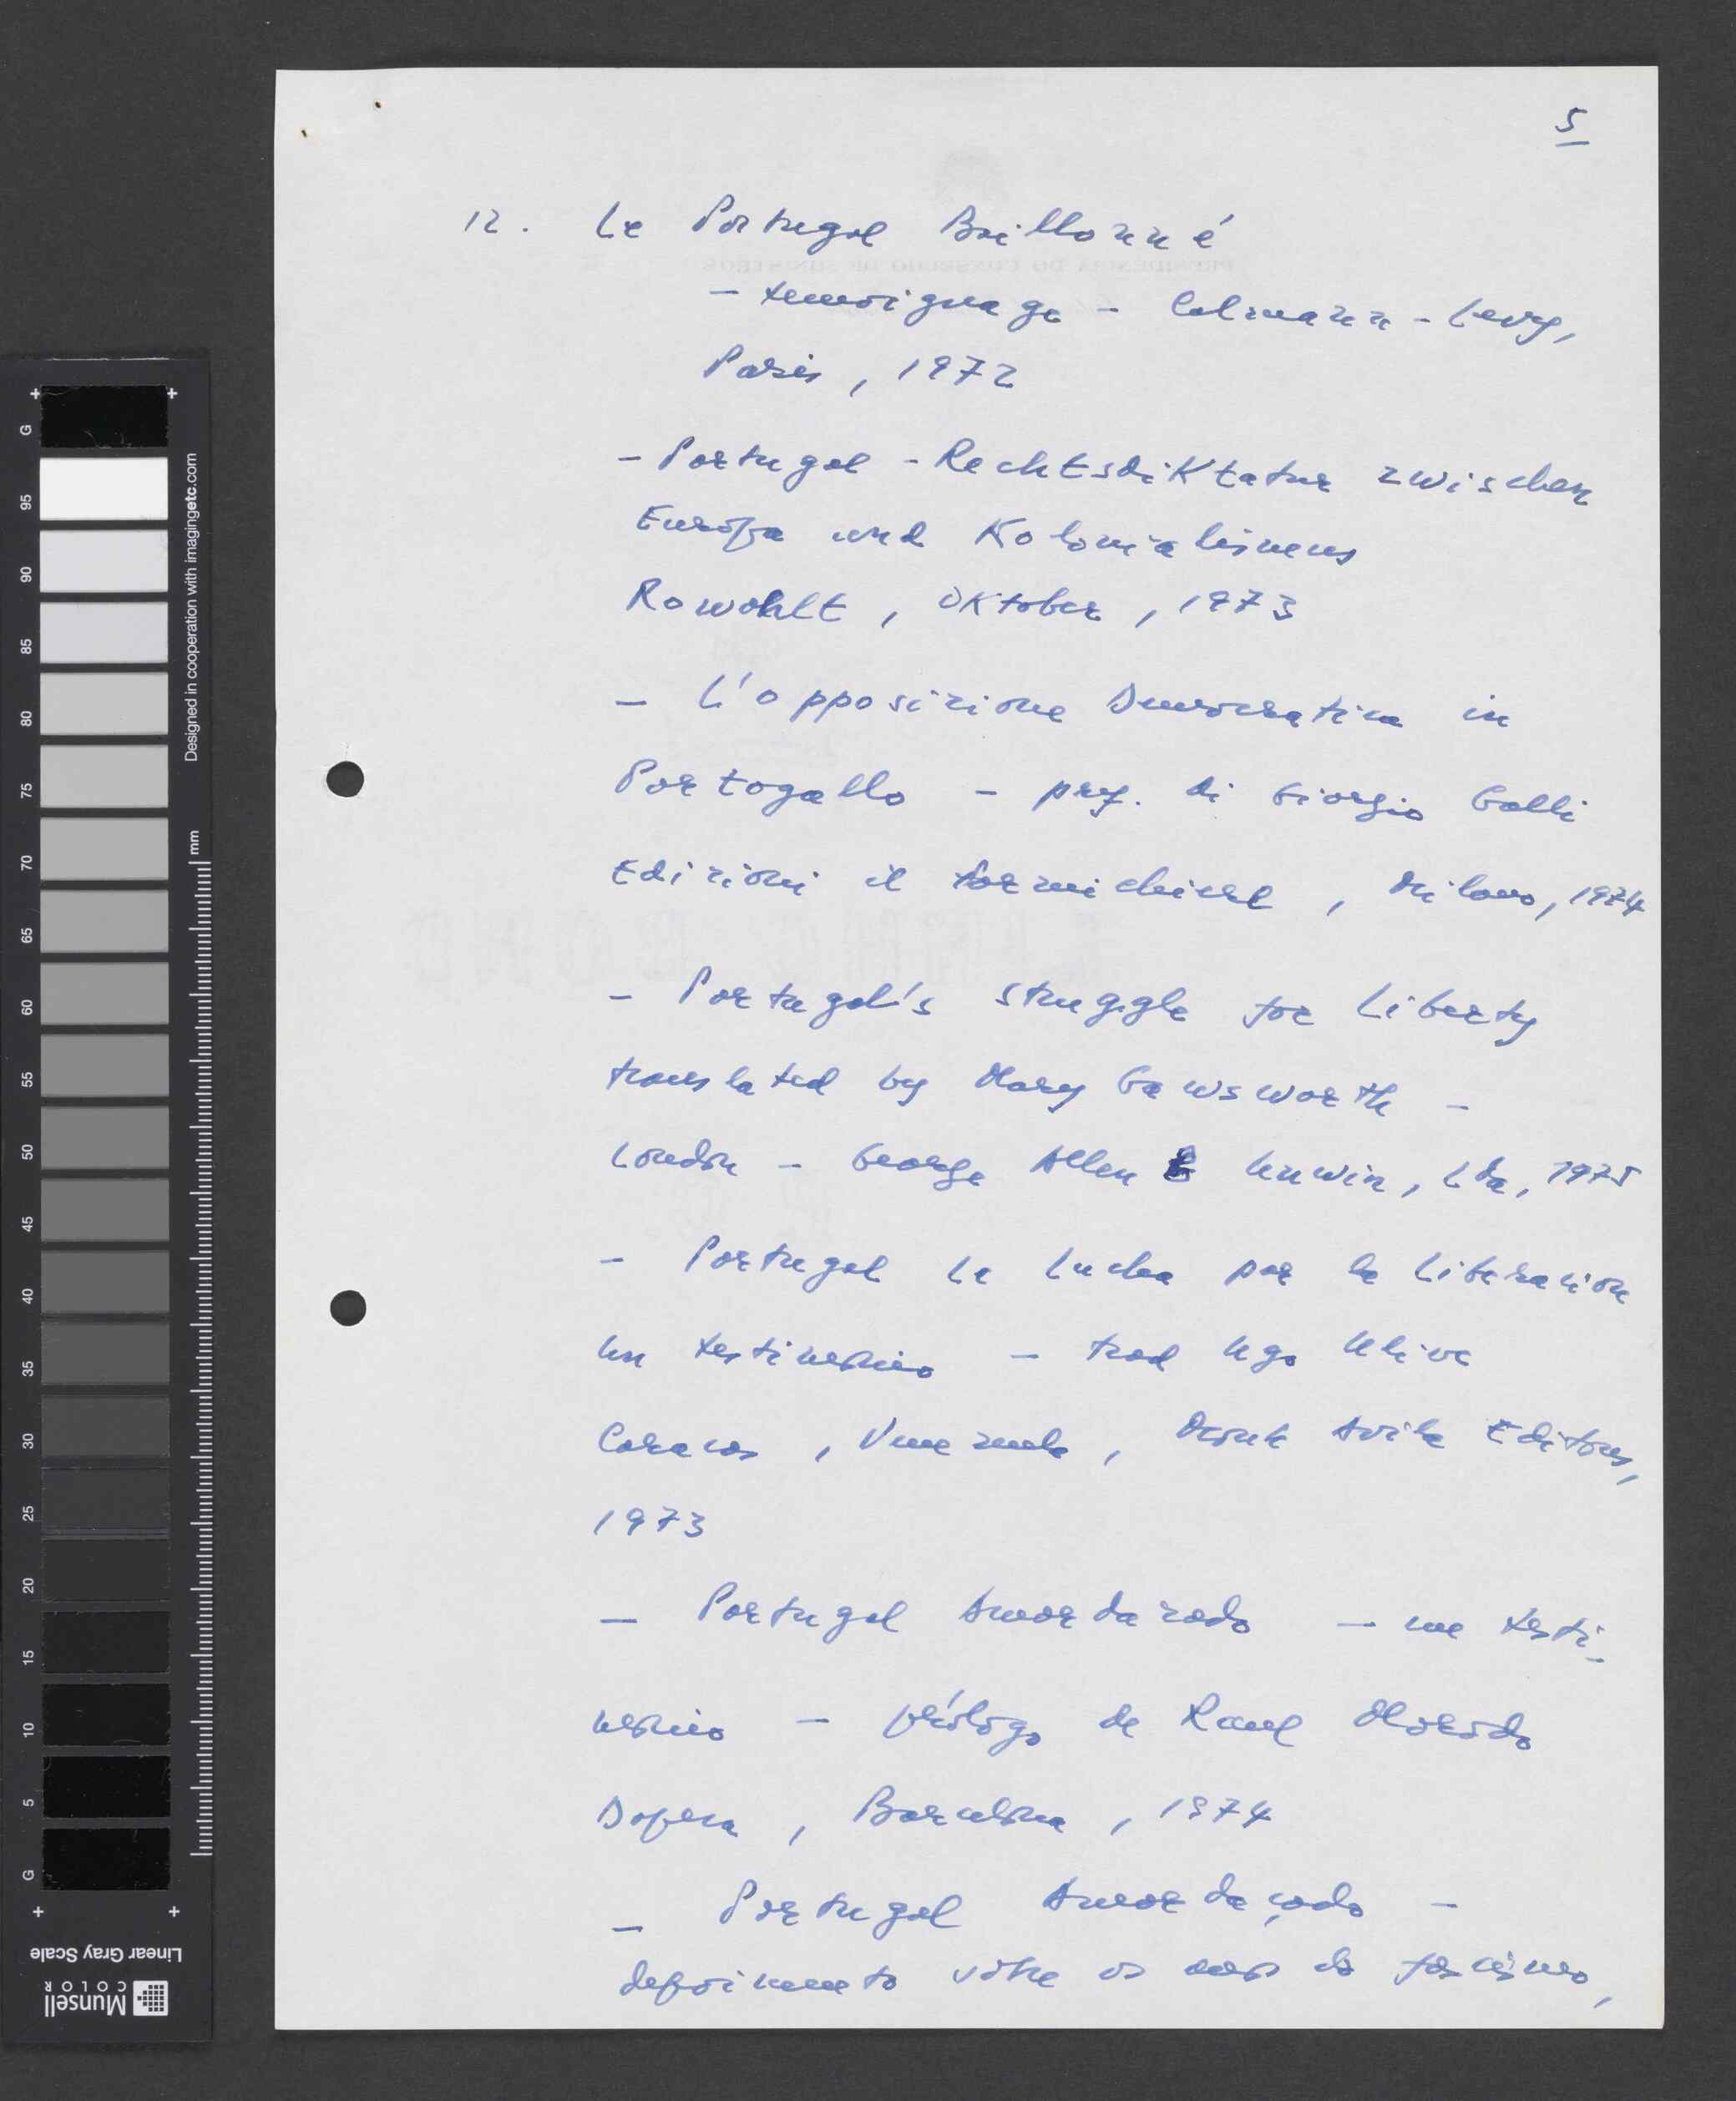 5
12. Le Portugal Baillonné
- temoignage - Calmann-Levy,
Paris, 1972
- Portugal - Rechtsdiktatur zwischen
Europa und Kolonialismus
Rowohlt, Oktober, 1973
- L'opposizione Democratica in
Portogallo - pref. di Giorgio Galli
Edizioni il formichiere, Milano, 1974
- Portugal's struggle for Liberty
translated by Mary Gawsworth -
London - George Allen & Unwin, Lda, 1975
- Portugal La Lucha por la Liberacion
Un testimonio - trad Ugo Ulive
Caracas, Venezuela, Monte Avila Editores,
1973
- Portugal Amordazado - un testi-
monio - prólogo de Raul Morodo
Dopesa, Barcelona, 1974
- Portugal Amordaçado -
depoimento sobre os anos do fascismo,
G
95
90
85
80
75
70
65
60
55
50
45
40
35
30
25
20
15
10
5
G
Designed in cooperation with imagingetc.com
mm
Linear Gray Scale
Munsell
COLOR